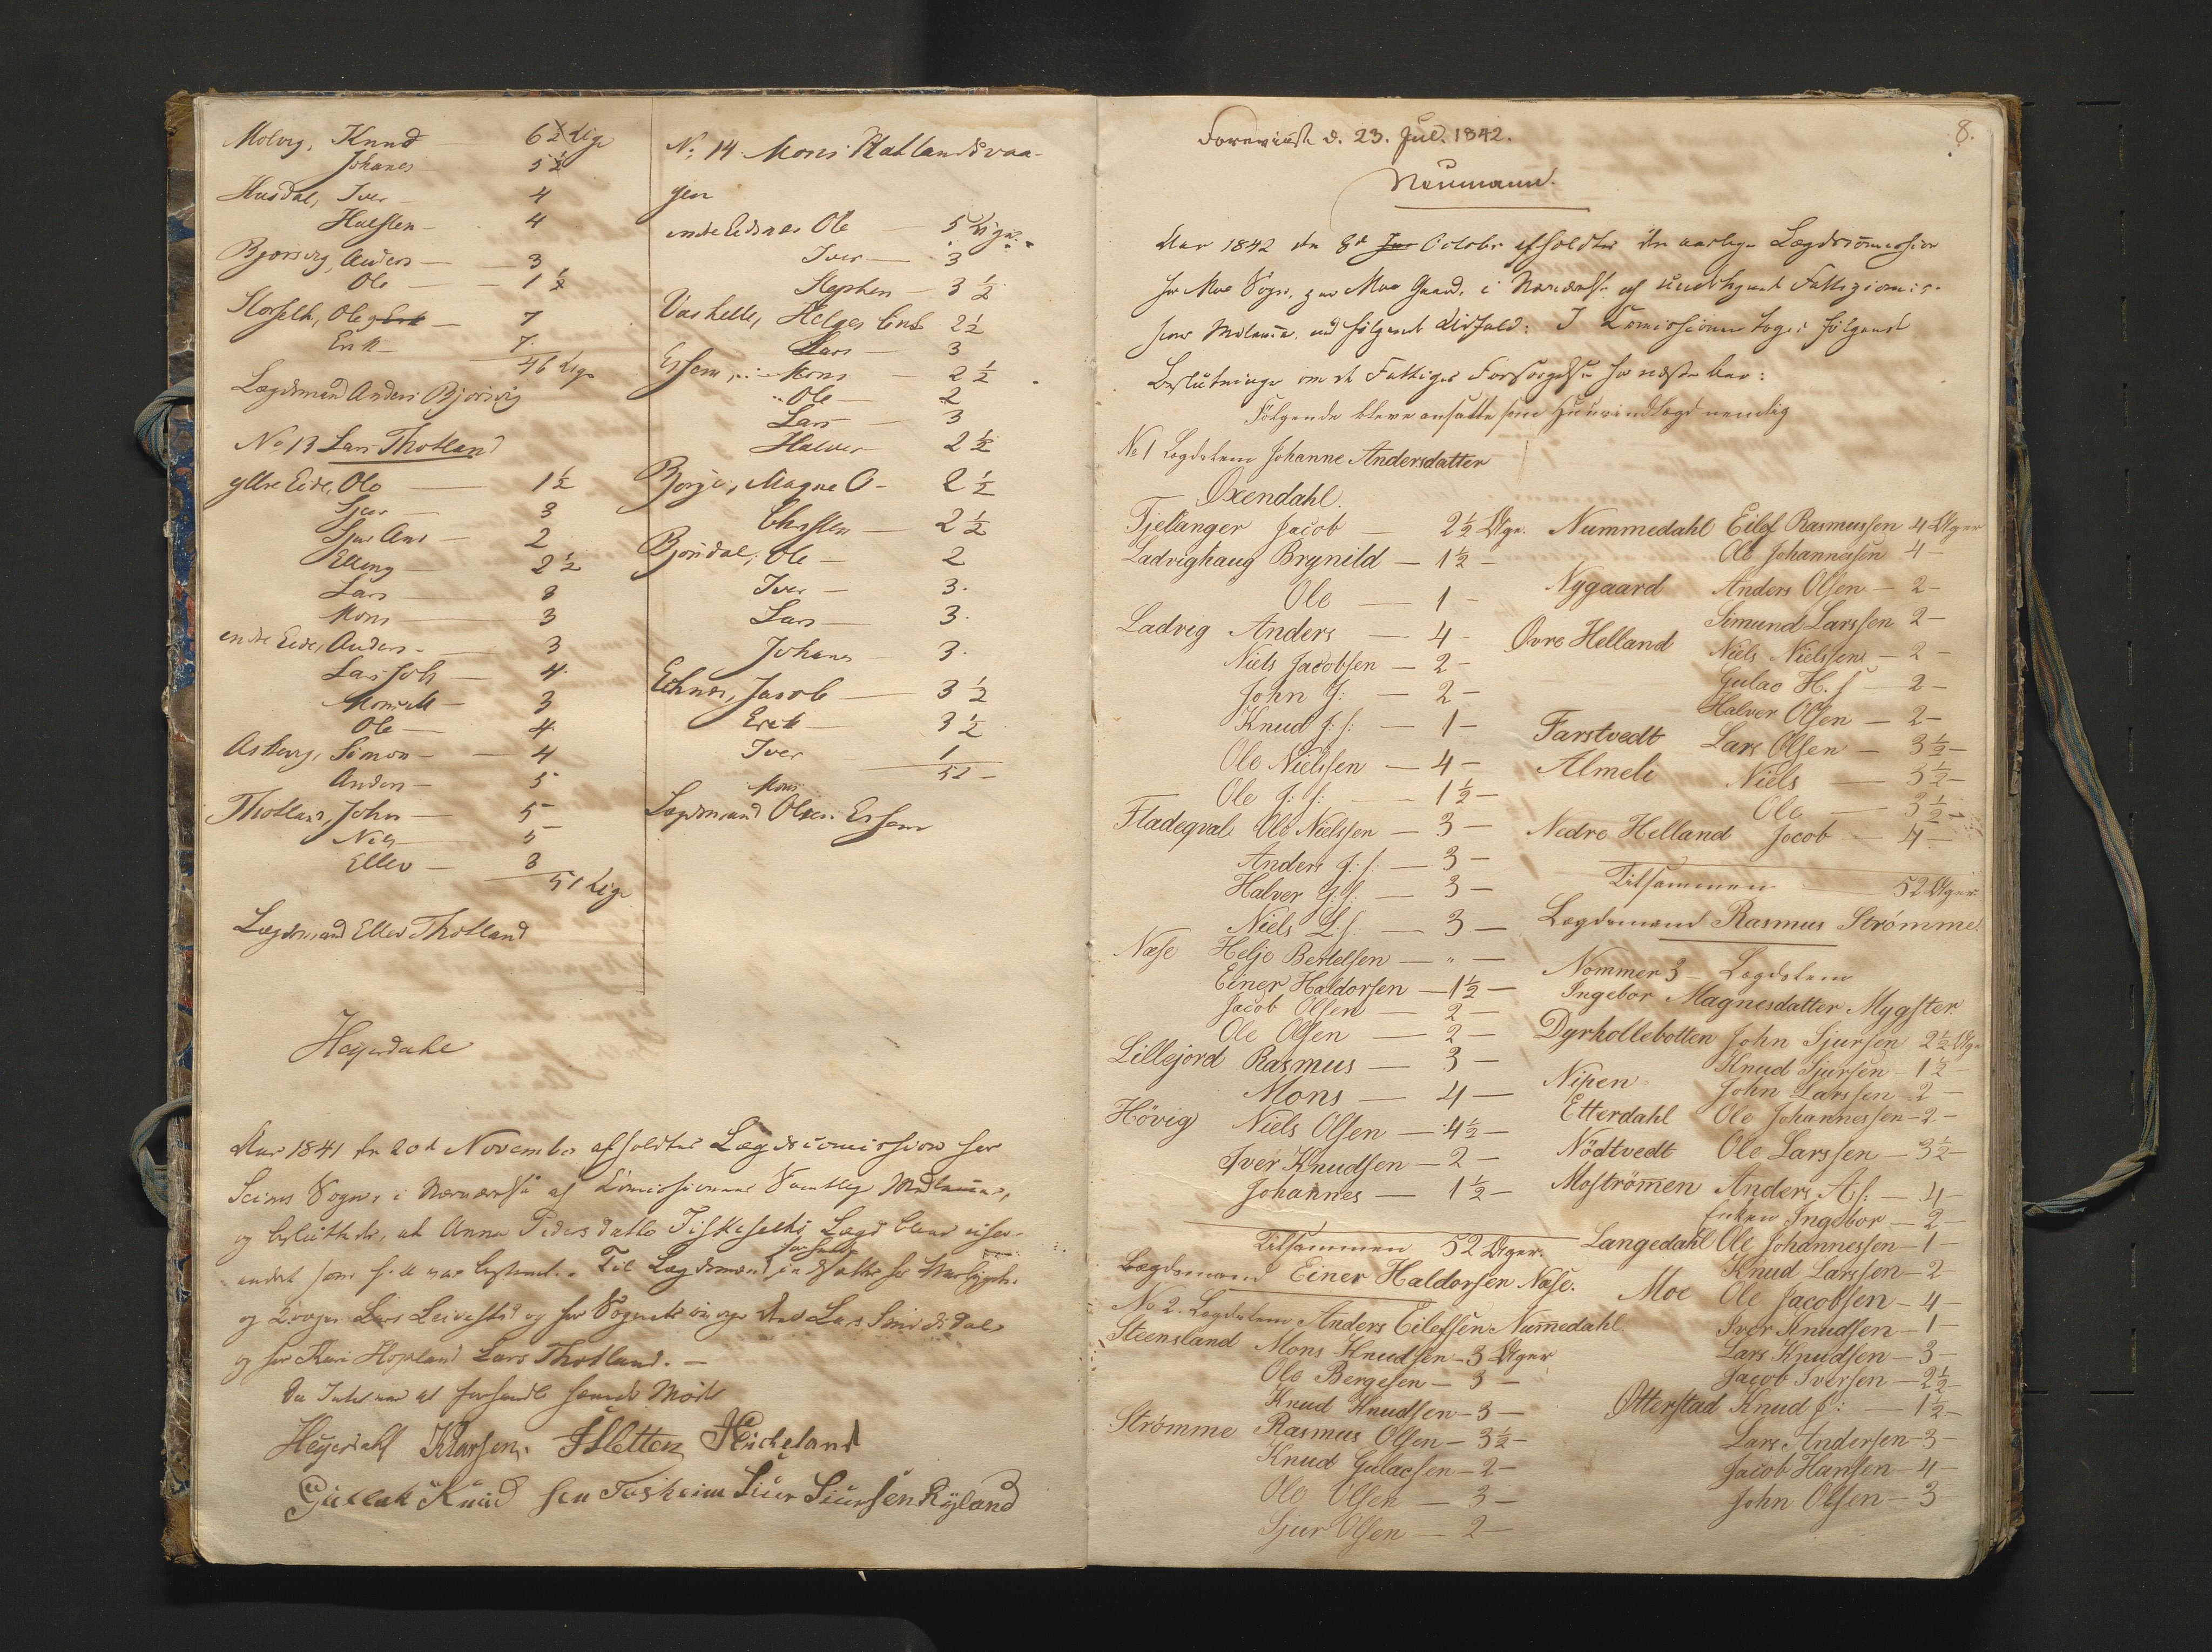 Molvig, Knud 6½ Uge
Johanes 5½
Husdal, Iver 4
Halsten 4
Bjørsvig, Anders 3
Ole 1½
Storseth, Ole 7
Erik 7
46 Uge
Lægdsmand Anders Bjørsvig
No 13 Lars Thotland
yttre Eide, Ole 1½
Sjur 3
Sjur And 2
Elling 2½
Lars 3
Mons 3
indre Eide, Anders 3
Lars Joh 4
Mons 3
Ole 4
Asberg, Simon 4
Anders 5
Thotland, John 5
Nils 5
Ellev 3
51 Uge
Lægdsmand Ellev Thotland
Heyerdahl
No 14 Mons Hatlandsvaa-
gen
indre Eidsnes Ole 5 Uger
Iver 3
Stephen 3½
Vashelle, Helges Enke 2½
Lars 3
Essem, Mons 2½
Ole 2
Lars 3
Halver 2½
Borge, Magne O 2½
2½
Bjordal, Ole 2
Iver 3
Lars 3
Johanes 3
Jacob 3½
Erik 3½
Iver 1
52
Mons
Lægdsmand Essem
Aar 1841 den 20d November afholdtes Lægdscomission for
Seims Sogn, i Nærværelse af Comissionens Samtlige Medlemmer,
og besluttedes, at Anna Pedersdatter Lægd blev
andet som før var bestemt. Til Lægdsmand
og Lars Leivestad og for Sognets
og for Kari Hopland Lars Thotland.
Da Intet var at forhandle hævedes Mødet
Heyerdahl KLarsen. Sletten
Gullak Knud sen Tosheim Siur Siursen Ryland
8.
Foreviist d. 23. Jul. 1842.
Neumann.
Aar 1842 den 8d Octobr afholdtes den aarlige Lægdscomission
for Moe Sogn, paa Moe Gaard, i Nærværelse af undertegnede Fattigcomis-
sions Medlemmer, med følgende Udfald: I Comissionen toges følgende
Beslutninger om de Fattiges Forsørgelse for næste Aar:
Følgende bleve ansatte som nemlig
No 1 Legdslem Johanne Andersdatter
Oxendahl.
Tjelanger Jacob — 2½ Uger.
Ladvighaug Brynild — 1½ —
Ole — 1 —
Ladvig Anders — 4 —
Niels Jacobsen — 2 —
John J: — 2 —
Knud J. s: — 1 —
Ole Nielssen — 4 —
Ole J: s: — 1½ —
Fladeqval Ole Nielssen — 3 —
Anders J. s: — 3 —
Halver J. s: — 3 —
Niels L. s: — 3 —
Næse Helje Bertelsen — " —
Einer Haldorsen — 1½ —
Jacob Olsen — 2 —
Ole Olsen — 2 —
Lillejord Rasmus — 3 —
Mons — 4 —
Hövig Niels Olsen — 4½ —
Iver Knudsen — 2 —
Johannes — 1½ —
Tilsammen 52 Uger.
Lægdsmand Einer Haldorsen Næse.
No 2. Legdslem Anders Eilefsen Nummedahl
Steensland Mons Knudsen — 3 Uger
Ole Bergesen — 3 —
Knud Knudsen — 3 —
Strømme Rasmus Olsen — 3½ —
Knud Gulacsen — 2 —
Ole Olsen — 3 —
Sjur Olsen — 2 —
Nummedahl Eilef Rasmussen 4 Uger
Ole Johannessen 4 —
Nygaard Anders Olsen — 2 —
Simund Larssen 2 —
Øvre Helland Niels Nielssen — 2 —
Gulac H. s — 2 —
Halver Olsen — 2 —
Farstvedt Lars Olsen — 3½ —
Almeli Niels — 3½ —
Ole — 3½ —
Nedre Helland Jacob — 4 —
Tilsammen 52 Uger.
Lægdsmand Rasmus Strömme.
Nommer 3 — Legdslem
Ingebor Magnesdatter Mygster
Dyrkollebotten John Sjursen 2½ Uger
Knud Sjursen — 1½ —
Nipen John Larssen — 2 —
Etterdahl Ole Johannessen — 2 —
Nödtvedt Ole Larssen — 3½ —
Moströmen Anders A s: — 4 —
Enken Ingebor — 2 —
Langedahl Ole Johannessen — 1 —
Knud Larssen — 2 —
Moe Ole Jacobsen — 4 —
Iver Knudsen — 1 —
Lars Knudsen — 3 —
Jacob Iversen — 2½ —
Otterstad Knud J: — 1½ —
Lars Andersen — 3 —
Jacob Hansen — 4 —
John Olsen — 3